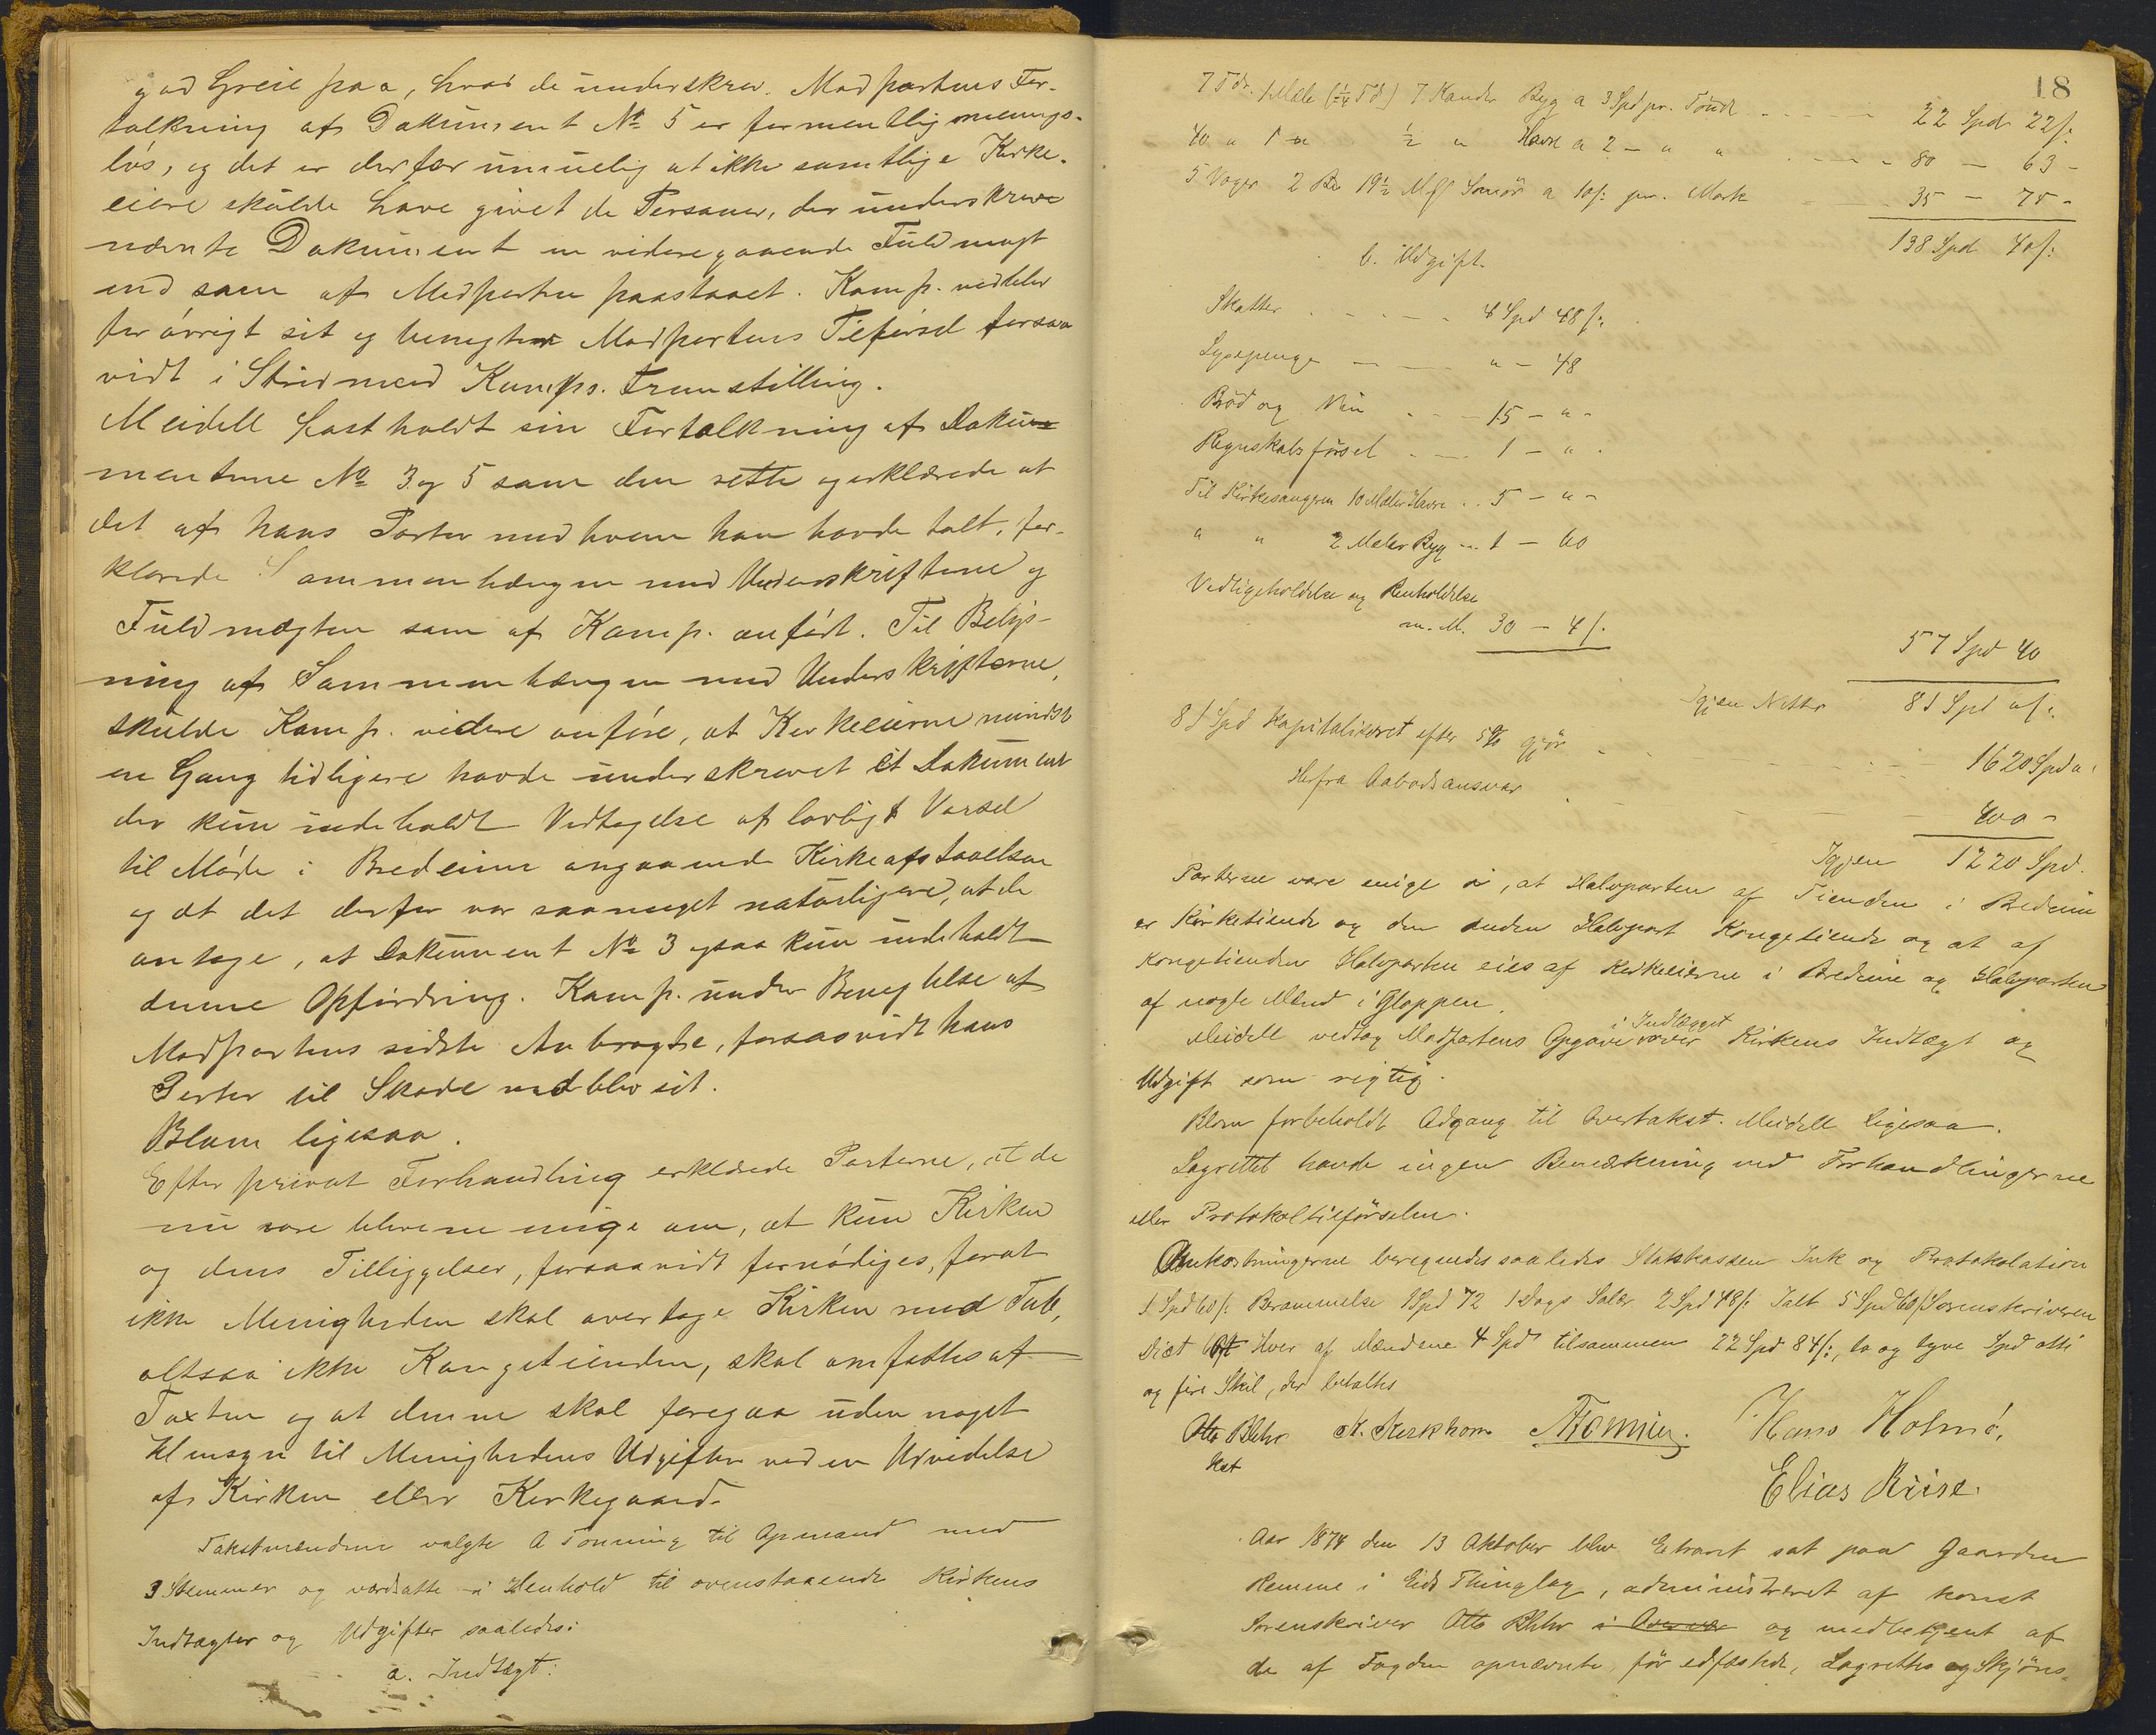 god Greie paa, hvad de underskrev. Modpartens For-
tolkning af Dokument No 5 er formentlig menings-
løs, og det er derfor umuelig at ikke samtlige Kirke-
eiere skulde have givet de Personer, der underskreve
nævnte Dokument en videregaaende Fuldmagt
end som af Modparten paastaaet. Komp. vedblev
for øvrigt sit og benegter Modpartens Tilførsel forsaa
vidt i Strid med Komps. Fremstilling.
Meidell fastholdt sin Fortolkning af Doku-
menterne No 3 og 5 som den rette og erklærede at
det af hans Parter med hvem han havde talt, for-
klarede Sammenhængen med Underskrifterne og
Fuldmagten som af Komp. anført. Til Belys-
ning af Sammenhængen med Underskrifterne,
skulde Komp. videre anføre, at Kirkeeierne mindst
en Gang tidligere havde underskrevet et Dokument
der kun indeholdt Vedtagelse af lovligt Varsel
til Møde i Bredeim angaaende Kirkeafstaaelsen
og at det derfor var saameget naturligere, at de
antoge, at Dokument No 3 ogsaa kun indeholdt
denne Opfordring. Komp. under Benegtelse af
Modpartens sidste Anbragte, forsaavidt hans
Parter til Skade vedblev sit.
Blom ligesaa.
Efter privat Forhandling erklærede Parterne, at de
nu vare blevne enige om, at kun Kirken
og dens Tilliggelser, forsaavidt fornødiges, forat
ikke Menigheden skal overtage Kirken med Tab,
altsaa ikke Kongetienden, skal omfattes af
Taxten og at denne skal foregaa uden noget
Hensyn til Menighedens Udgifter ved en Udvidelse
af Kirken eller Kirkegaard.
Takstmændene valgte A Tonning til Opmand med
3 Stemmer og værdsatte i Henhold til ovenstaaende Kirkens
Indtægter og Udgifter saaledes:
a. Indtægt:
18
7 Tdr. 1 Mæle (¼ Td) 7 Kander Byg a 3 Spd pr. Tønde - - - - - 22 Spd 22 ſ:
40 " 1 " ½ " Havre a 2 - " " - - - - 80 - 63 -
5 Voger 2 Bd 19½ Mſ Smør a 10 ſ: pr. Mark - - - 35 - 75 -
138 Spd 40 ſ:
b. Udgift
Skatter - - - - - 4 Spd 48 ſ:
Lysepenge - - - " - 48
Brød og Vin - - - 15 - " -
Regnskabsførsel - - - 1 - " -
Til Kirkesangeren 10 Mæler Havre . . 5 - " -
" " 2 Mæler Byg . . . 1 - 60
Vedligeholdelse og Renholdelse
m. M. 30 - 4 ſ.
57 Spd 40
Igjen Netto 81 Spd " ſ:
81 Spd kapitaliseret efter 5% gjør - - - - 1620 Spd "
Herfra Aabodsansvar - - - - 400 -
Igjen 1220 Spd.
Parterne vare enige i, at Halvparten af Tienden i Bredeim
er Kirketiende og den anden Halvpart Kongetiende og at af
Kongetienden Halvparten eies af Kirkeeierne i Bredeim og Halvparten
af nogle Mænd i Gloppen.
i Indlægget
Meidell vedtog Modpartens Opgave over Kirkens Indtægt og
Udgift som rigtig.
Blom forbeholdt Adgang til Overtakst. Meidell ligesaa.
Lagrettet havde ingen Bemærkning ved Forhandlingerne
eller Protokoltilførselen.
Omkostningerne beregnedes saaledes Statskassen Ink og Protokolation
1 Spd 60 ſ: Berammelse 1 Spd 72 1 Dags Salær 2 Spd 48 ſ: Ialt 5 Spd 60 ſ: Sorenskriveren
Diæt Hver af Mændene 4 Spd tilsammen 22 Spd 84 ſ:, to og tyve Spd otti
og fire Skil, der betaltes
Otto Blehr K. Kirkhorn ATonning. Hans Holmø,
Kst
Elias Riise.
Aar 1874 den 13 Oktober blev Extraret sat paa Gaarden
Remme i Eids Thinglag, administreret af konst
Sorenskriver Otto Blehr i og medbetjent af
de af Fogden opnævnte, før edfæstede, Lagrettes og Skjøns-